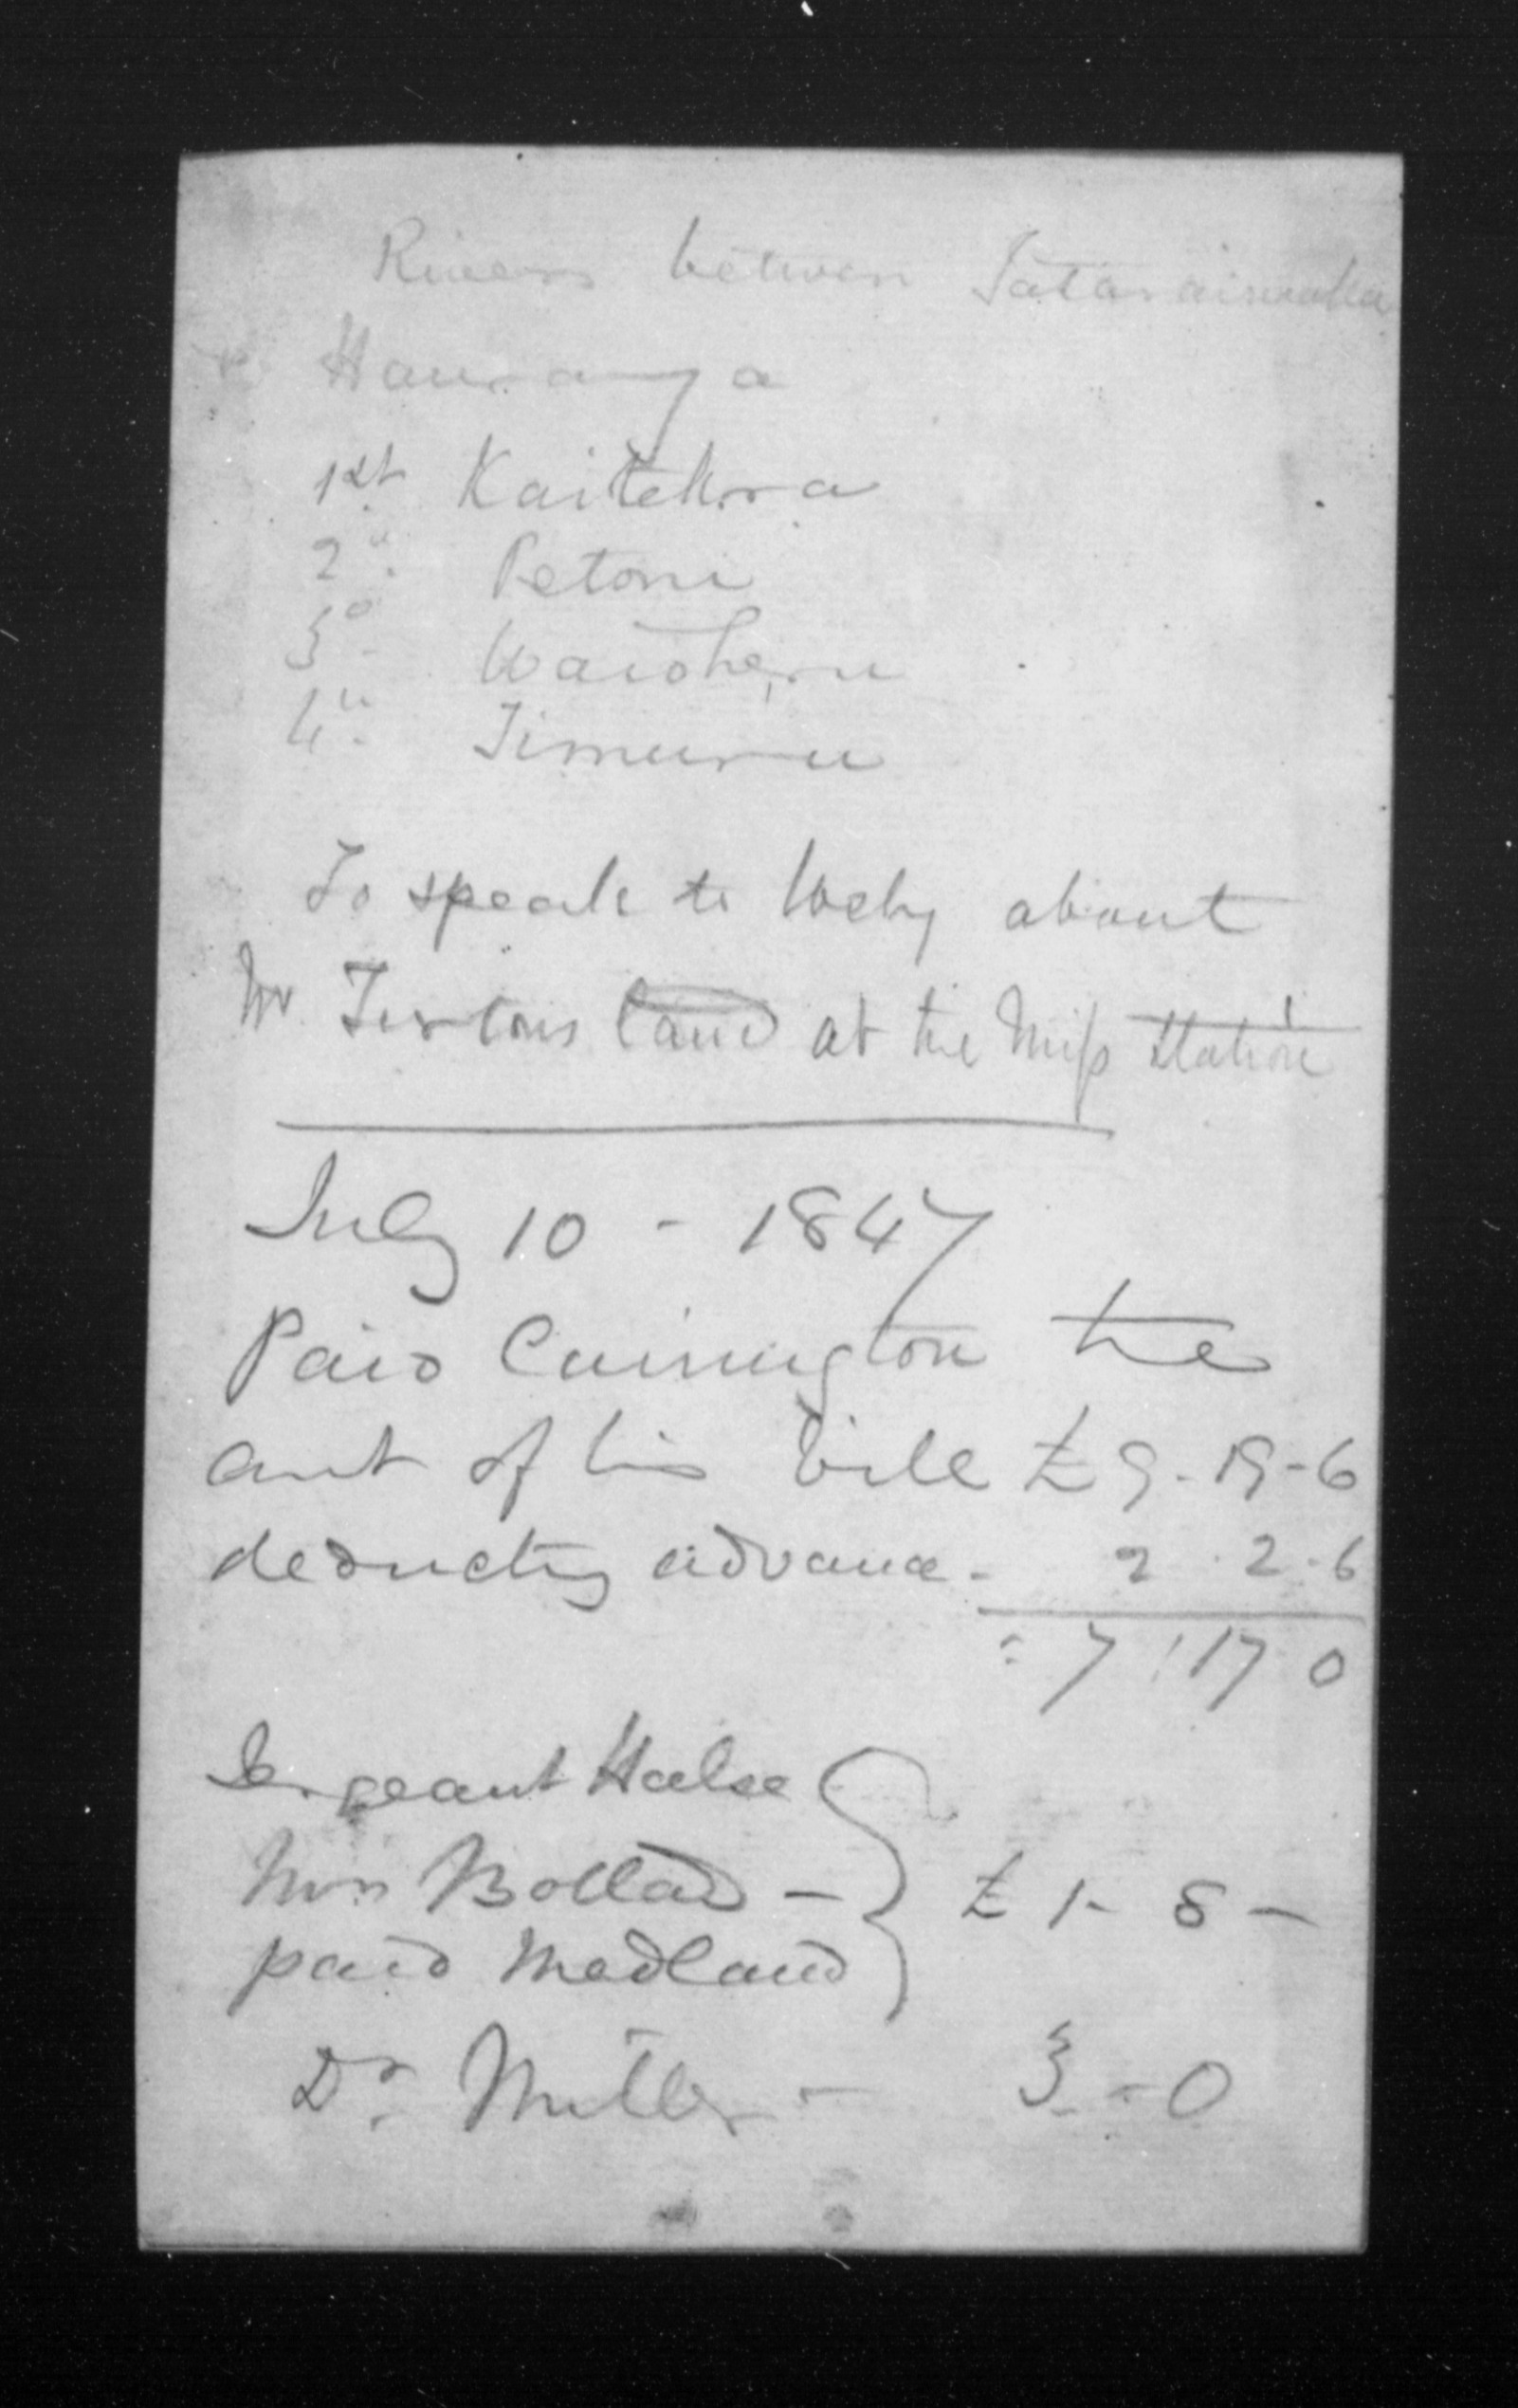 Rivers between Tataraimaka
& Hauranga
1st Kaitehra
2d Petone
3d Waioheru
4th Timuru
To speak to Wely about
Mr Turtons land at the Miss Station
July 10 - 1847
Paid Carrington the
amt of his bill £9-19-6
deductg advance - 2 . 2 - 6
= 7 : 17 0
Sergeant Halse
Mrs Bollad -
paid Medland £1- 8 -
Dr. Miller - 3 - 0